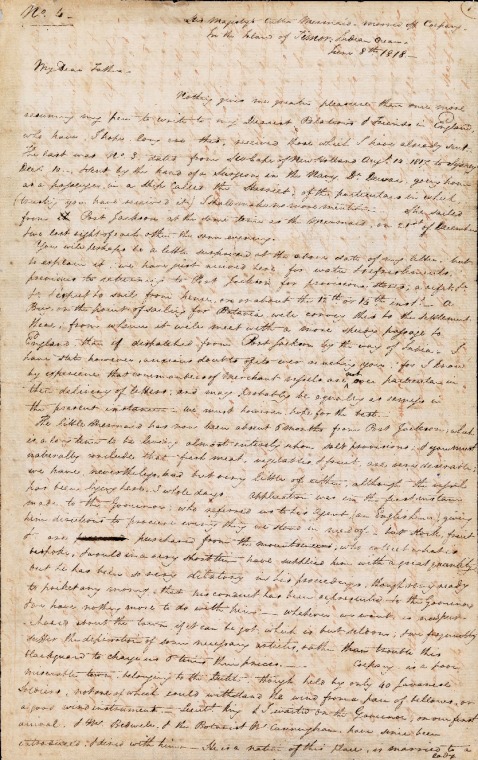 No. 4.
His Majesty's Cutter Mermaid - moored off Coepang
In the Island of Timor, Indian Ocean
June 8th 1818 -
My Dear Father
Nothing gives me greater pleasure than once more
resuming my pen to write to my Dearest Relations & Friends in England,
who have I hope long ere this, received those which I have already sent.
The last was No 3, dated from New Holland to Sydney
Decr. - sent by the hand of a Surgeon in the Navy Dr. going home
as a passenger in a Ship called the Harriet, of the particulars in which
(trusting you have received it) I shall make no more mention. She sailed
from Port Jackson at the same time as the Mermaid, on 21st of December
& we lost sight of each other the same evening.
You will perhaps be a little surprised at the above date of my letter, but
to explain it, we have just arrived here for water & refreshments,
previous to returning to Port Jackson for provisions, stores, a refit &c
& I expect to sail from hence, on or about the 12th or 14th inst. A
Brig on the point of sailing for Batavia will convey this to the settlement
there; from whence it will meet with a more speedy passage to
England than if despatched from Port Jackson by the way of India. I
have still however, anxious doubts of its ever reaching you, for I know
by experience that commanders of Merchant vessels are not over particular in
the delivery of letters, and may probably be equally as remiss in
the present instance - we must however, hope for the best.
The little Mermaid has now been about 6 months from Port Jackson, which
is a long time to be living almost entirely upon salt provisions, & you must
naturally conclude that fresh meat, vegetables & fruit are very desirable;
we have, nevertheless, had but very little of either, although the vessel
has been lying here, whole days. Application was in the first instance
made to the Governor, who referred us to his agent, an Englishman, giving
him directions to procure every thing we stood in need of - but stock, fruit
&c are purchased from the mountaineers, who collect what is
bespoke, & would in a very short time have supplied him with a great quantity
but he has been so very dilatory in his proceedings, though very ready
to pocket any money, that his conduct has been represented to the Governor
& we have nothing more to do with him - whatever we want is
about the town if it can be got which is but seldom, & we frequently
suffer the deprivation of some necessary articles, rather than trouble this
blackguard to charge us times their prices. - Coepang is a poor
miserable town, belonging to the Dutch - though held by only 40 Javanese
Soldiers, not one of which could withstand the wind from a pair of bellows, or
a good wind instrument - Lieut. King & I waited on the Governor, on our first
arrival, & Mr. Bedwell, & the Botanist Mr. Cunningham, have since been
introduced & dined with him - He is a native of this place, is married to a
Lady